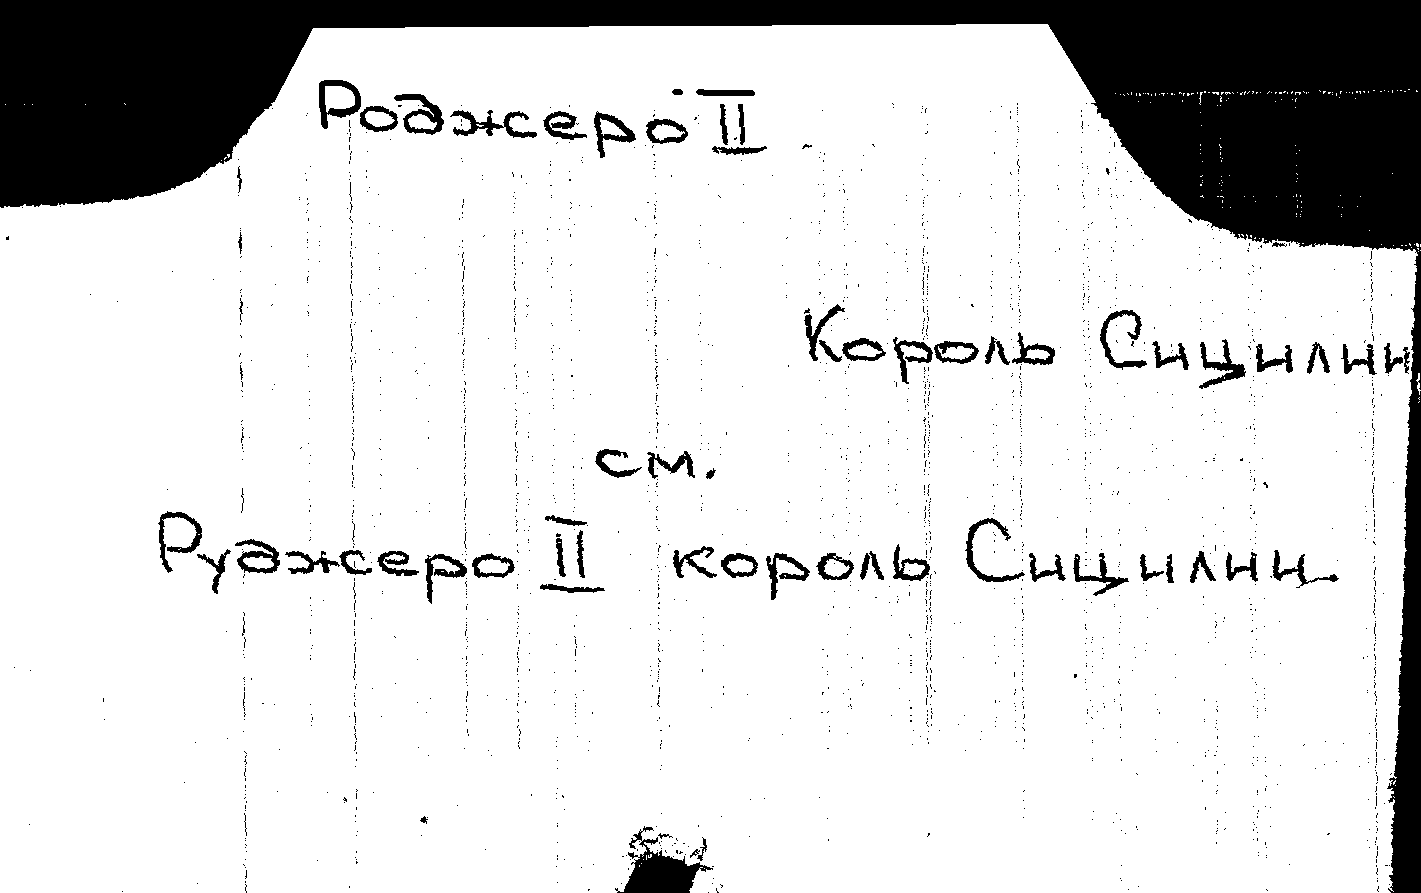 Роджеро II
Король Сицилии
см.
Руджеро II король Сицилии.